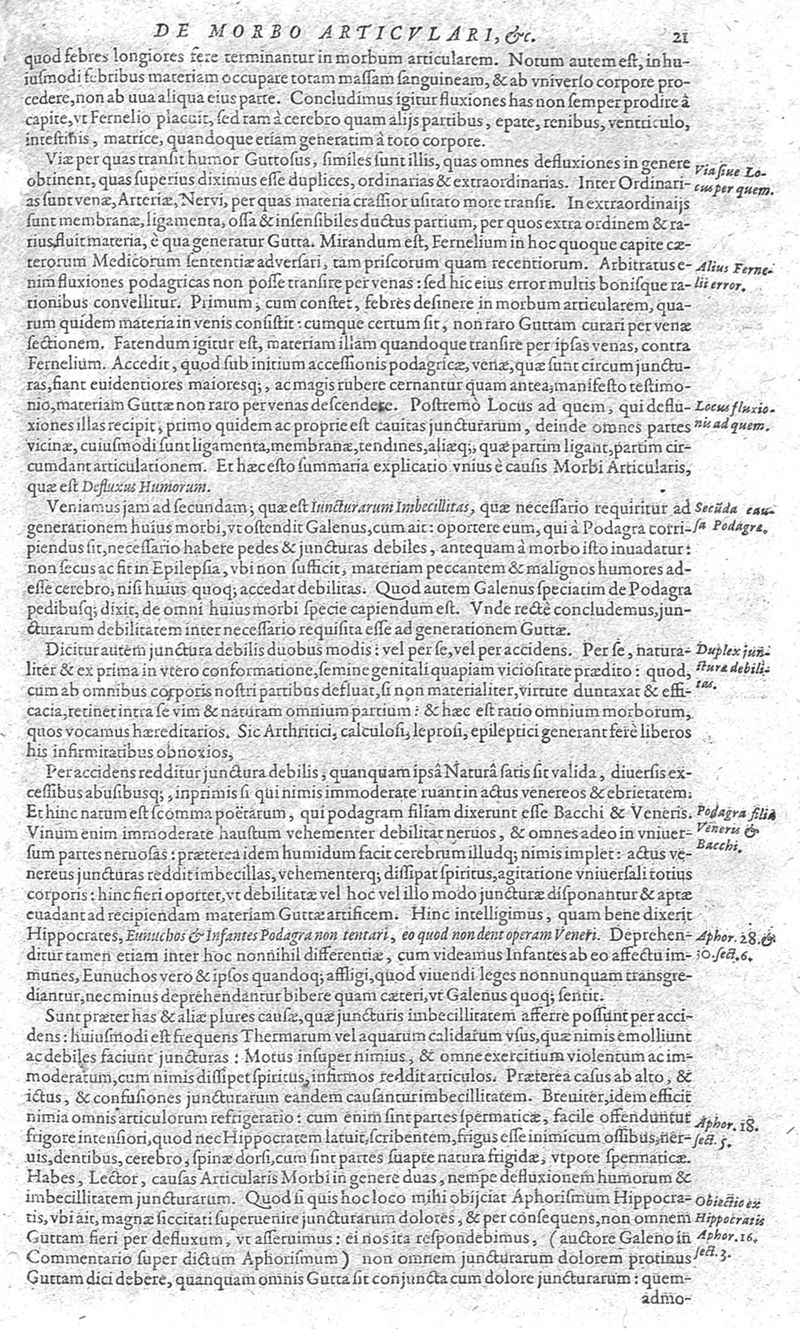 DE MORBO ARTICVLARI, &c. 21
quod febres longiores fere terminantur in morbum articularem. Notum autem eſt, in hu-
iuſmodi febribus materiam occupare totam maſſam ſanguineam, & ab vniverſo corpore pro-
cedere, non ab uua aliqua eius parte. Concludimus igitur fluxiones has non ſemper prodire â
capite, vt Fernelio placuit, ſed tam à cerebro quam alijs partibus, epate, renibus, ventriculo,
inteſtinis, matrice, quandoque etiam generatim â toto corpore.
Viæ per quas tranſit humor Guttoſus, ſimiles ſunt illis, quas omnes defluxiones in genere
Via ſiue Lo-
obtinent, quas ſuperius diximus eſſe duplices, ordinarias & extraordinarias. Inter Ordinari-
cus per quem.
as ſunt venæ, Arteriæ, Nervi, per quas materia craſſior uſitato more tranſit. In extraordinaijs
ſunt membranæ, ligamenta, oſſa & inſenſibiles ductus partium, per quos extra ordinem & ra-
rius, fluit materia, è qua generatur Gutta. Mirandum eſt, Fernelium in hoc quoque capite cæ-
terorum Medicorum ſententiæ adverſari, tam priſcorum quam recentiorum. Arbitratus e-
Alius Ferne-
nim fluxiones podagricas non poſſe tranſire per venas: ſed hic eius error multis boniſque ra-
lii error.
tionibus convellitur. Primum, cum conſtet, febres deſinere in morbum articularem, qua-
rum quidem materia in venis conſiſtit: cumque certum ſit, non raro Guttam curari per venæ
ſectionem. Fatendum igitur eſt, materiam illam quandoque tranſire per ipſas venas, contra
Fernelium. Accedit, quod ſub initium acceſſionis podagricæ, venæ, quæ ſunt circum junctu-
ras, fiant euidentiores maioresq;, ac magis rubere cernantur quam antea; manifeſto teſtimo-
nio, materiam Guttæ non raro per venas deſcendere. Poſtremò Locus ad quem, qui deflu-
Locus fluxio-
xiones illas recipit, primo quidem ac proprie eſt cauitas juncturarum, deinde omnes partes
nis ad quem.
vicinæ, cuiuſmodi ſunt ligamenta, membranæ, tendines, aliæq;, quæ partim ligant, partim cir-
cumdant articulationem. Et hæc eſto ſummaria explicatio vnius è cauſis Morbi Articularis,
quæ eſt Defluxus Humorum.
Veniamus jam ad ſecundam; quæ eſt Iuncturarum Imbecillitas, quæ neceſſario requiritur ad
Secũda cau-
generationem huius morbi, vt oſtendit Galenus, cum ait: oportere eum, qui à Podagra corri-
ſa Podagræ.
piendus ſit, neceſſario habere pedes & juncturas debiles, antequam à morbo iſto inuadatur:
non ſecus ac fit in Epilepſia, vbi non ſufficit, materiam peccantem & malignos humores ad-
eſſe cerebro, niſi huius quoq; accedat debilitas. Quod autem Galenus ſpeciatim de Podagra
pedibuſq; dixit, de omni huius morbi ſpecie capiendum eſt. Vnde rectè concludemus, jun-
cturarum debilitatem inter neceſſario requiſita eſſe ad generationem Guttæ.
Dicitur autem junctura debilis duobus modis: vel per ſe, vel per accidens. Per ſe, natura-
Duplex jun̄-
liter & ex prima in vtero conformatione, ſemine genitali quapiam vicioſitate prædito: quod,
ſturæ debili-
cum ab omnibus corporis noſtri partibus defluat, ſi non materialiter, virtute duntaxat & effi-
tas.
cacia, retinet intra ſe vim & naturam omnium partium: & hæc eſt ratio omnium morborum,
quos vocamus hæreditarios. Sic Arthritici, calculoſi, leproſi, epileptici generant ferè liberos
his infirmitatibus obnoxios,
Per accidens redditur junctura debilis, quanquam ipsâ Naturâ ſatis ſit valida, diuerſis ex-
ceſſibus abuſibusq;, inprimis ſi qui nimis immoderate ruant in actus venereos & ebrietatem:
Et hinc natum eſt ſcomma poëtarum, qui podagram filiam dixerunt eſſe Bacchi & Veneris.
Podagra filia
Vinum enim immoderate hauſtum vehementer debilitat neruos, & omnes adeo in vniuer-
Veneris &
ſum partes neruoſas: præterea idem humidum facit cerebrum illudq; nimis implet: actus ve-
Bacchi.
nereus juncturas reddit imbecillas, vehementerq; diſſipat ſpiritus, agitatione vniuerſali totius
corporis: hinc fieri oportet, vt debilitatæ vel hoc vel illo modo juncturæ diſponantur & aptæ
euadant ad recipiendam materiam Guttæ artificem. Hinc intelligimus, quam bene dixerit
Hippocrates, Eunuchos & Infantes Podagra non tentari, eo quod non dent operam Veneri. Deprehen-
Aphor. 28. &
ditur tamen etiam inter hoc nonnihil differentiæ, cum videamus Infantes ab eo affectu im-
30. ſect. 6.
munes, Eunuchos vero & ipſos quandoq; affligi, quod viuendi leges nonnunquam transgre-
diantur, nec minus deprehendantur bibere quam cæteri, vt Galenus quoq; ſentit.
Sunt præter has & aliæ plures cauſæ, quæ juncturis imbecillitatem afferre poſſunt per acci-
dens: huiuſmodi eſt frequens Thermarum vel aquarum calidarum vſus, quæ nimis emolliunt
ac debiles faciunt juncturas: Motus inſuper nimius, & omne exercitium violentum ac im-
moderatum, cum nimis diſſipet ſpiritus, infirmos reddit articulos. Præterea caſus ab alto, &
ictus, & confuſiones juncturarum eandem cauſantur imbecillitatem. Breuiter, idem efficit
nimia omnis articulorum refrigeratio: cum enim ſint partes ſpermaticæ, facile offenduntur
Aphor. 18.
frigore intenſiori, quod nec Hippocratem latuit, ſcribentem, frigus eſſe inimicum oſſibus, ner-
ſect. 5.
uis, dentibus, cerebro, ſpinæ dorſi, cum ſint partes ſuapte natura frigidæ, vtpote ſpermaticæ.
Habes, Lector, cauſas Articularis Morbi in genere duas, nempe defluxionem humorum &
imbecillitatem juncturarum. Quod ſi quis hoc loco mihi obijciat Aphoriſmum Hippocra-
Obiectio ex
tis, vbi ait, magnæ ſiccitati ſuperuenire juncturarum dolores, & per conſequens, non omnem
Hippocratis
Guttam fieri per defluxum, vt aſſeruimus: ei nos ita reſpondebimus, (auctore Galeno in
Aphor. 16.
Commentario ſuper dictum Aphoriſmum) non omnem juncturarum dolorem protinus
ſect. 3.
Guttam dici debere, quanquam omnis Gutta ſit conjuncta cum dolore juncturarum: quem-
admo-